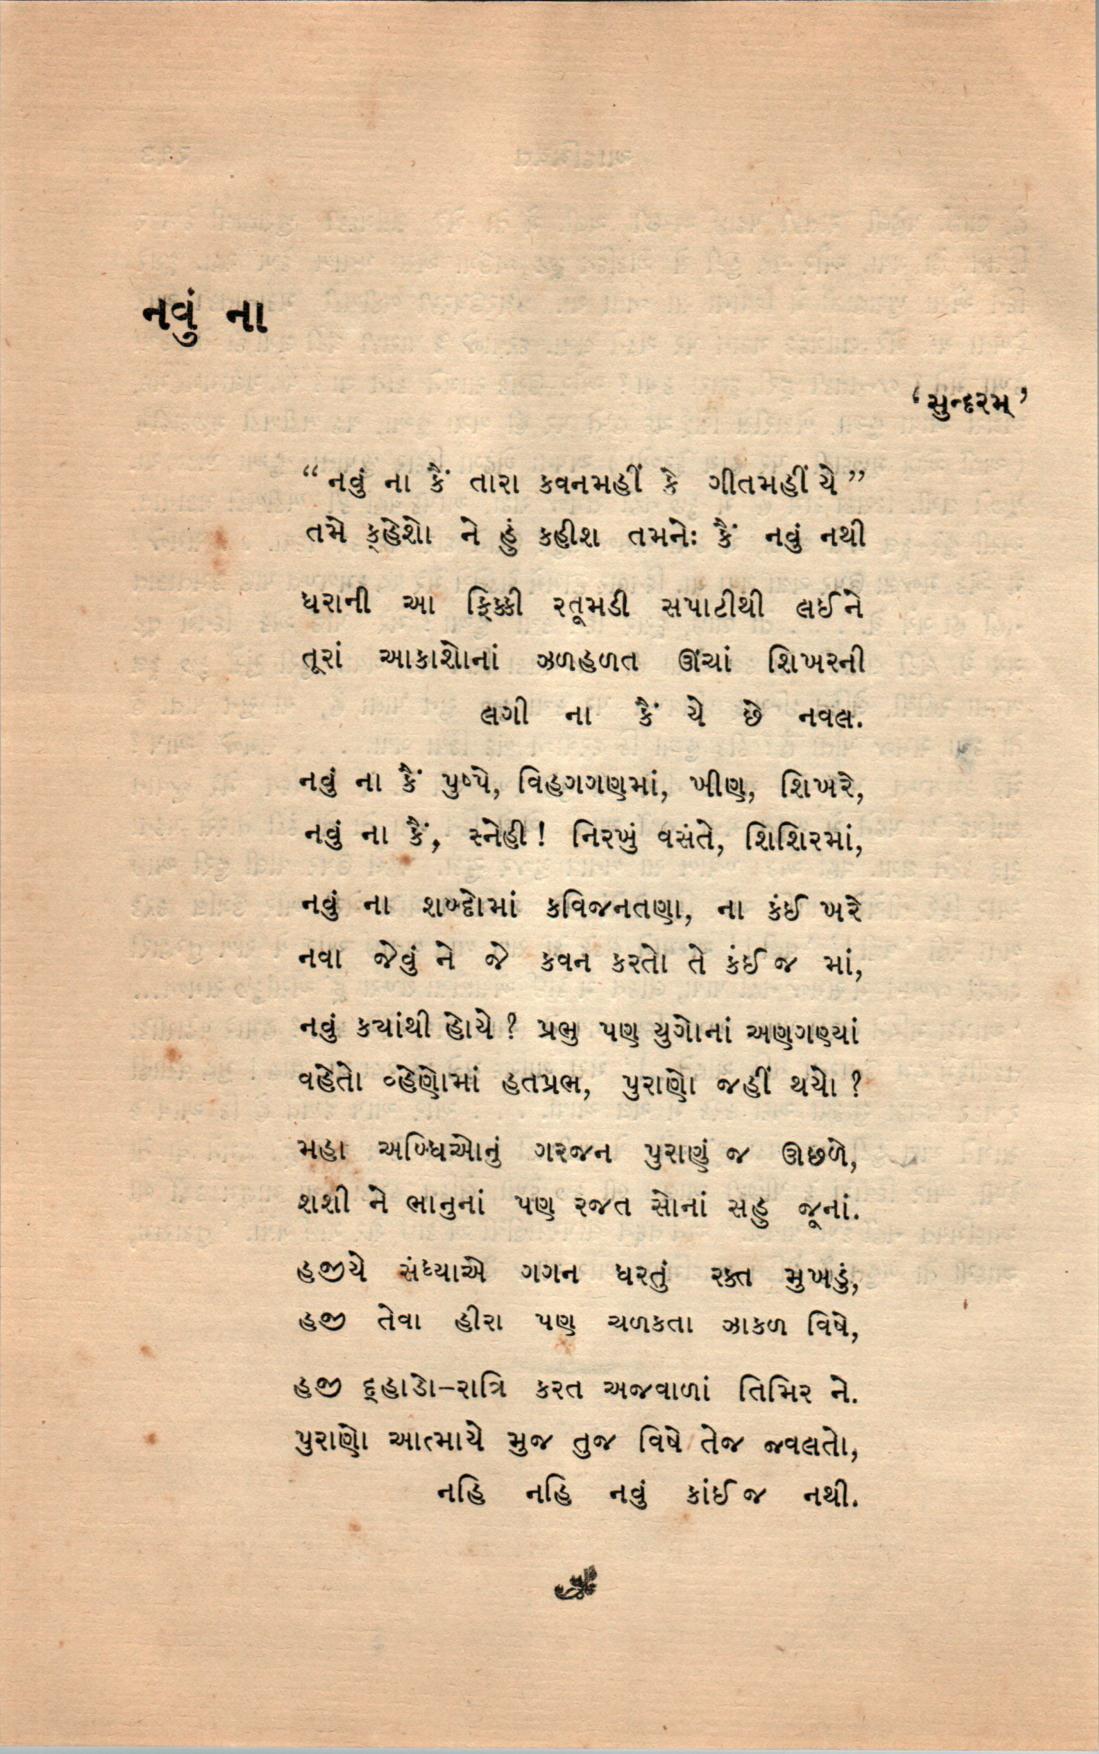 નવું ના
‘સુન્દરમ્’
“નવું ના કૈં તારા કવનમહીં કે ગીતમહીં યે”
તમે ક્‌હેશો ને હું કહીશ તમનેઃ કૈં નવું નથી
ધરાની આ ફિક્કી રતૂમડી સપાટીથી લઈને
તૂરાં આકાશોનાં ઝળહળત ઊંચાં શિખરની
લગી ના કૈં યે છે નવલ.
નવું ના કૈં પુષ્પે, વિહગગણમાં, ખીણ, શિખરે,
નવું ના કૈં, સ્નેહી! નિરખું વસંતે, શિશિરમાં,
નવું ના શબ્દોમાં કવિજનતણા, ના કંઈ ખરે
નવા જેવું ને જે કવન કરતો તે કંઈ જ માં,
નવું ક્યાંથી હોયે? પ્રભુ પણ યુગોનાં અણગણ્યાં
વહેતો વ્હેણોમાં હતપ્રભ, પુરાણો જહીં થયો?
મહા અબ્ધિઓનું ગરજન પુરાણું જ ઊછળે,
શશી ને ભાનુનાં પણ રજત સોનાં સહુ જૂનાં.
હજીયે સંધ્યાએ ગગન ધરતું રક્ત મુખડું,
હજી તેવા હીરા પણ ચળકતા ઝાકળ વિષે,
હજી દ્‌હાડો–રાત્રિ કરત અજવાળાં તિમિર ને.
પુરાણો આત્માયે મુજ તુજ વિષે તેજ જ્વલતો,
નહિ નહિ નવું કાંઈ જ નથી.